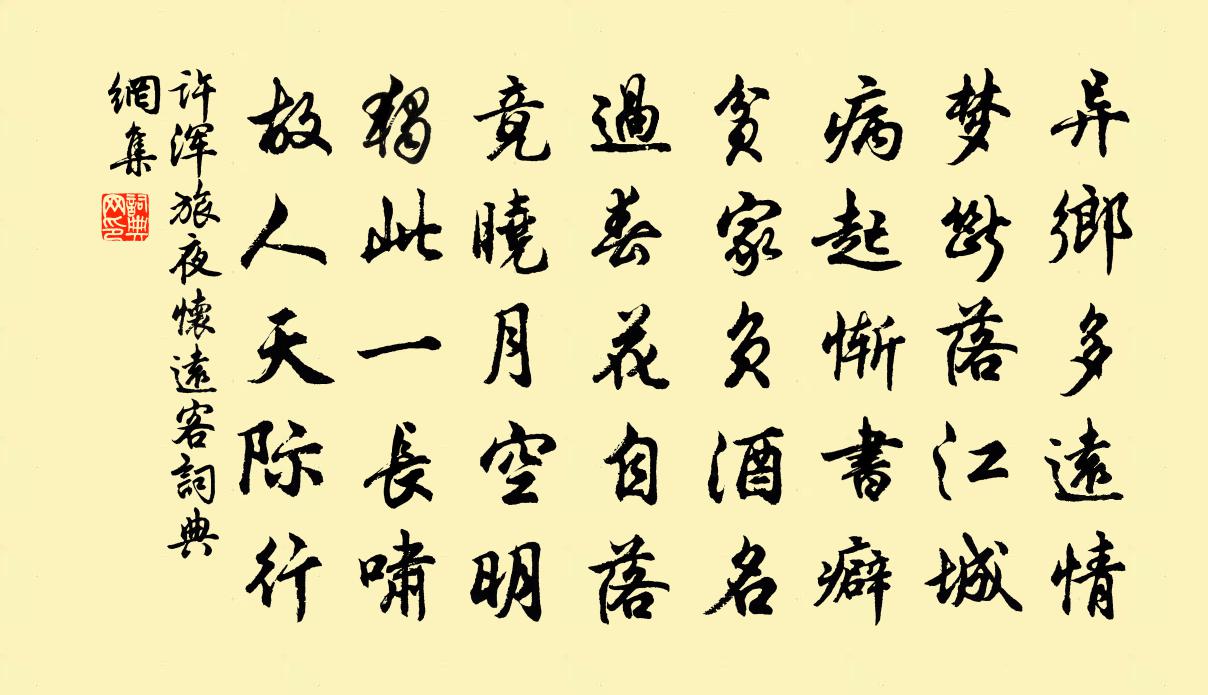 异鄉多遠情
梦斷落江城
病起慚書癖
貧家負酒名
過春花自落
竟曉月空明
獨此一長嘯
故人天际行
许渾旅夜懷遠客詞典
網集
詞典
网印